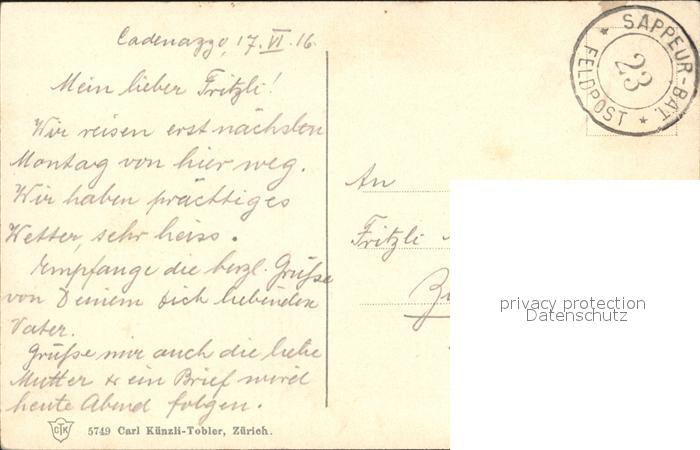 Cadenazzo, 17. VI. 16.
Mein lieber Fritzli!
Wir reisen erst nächsten
Montag von hier weg.
Wir haben prächtiges
Wetter, sehr heiss.
Empfange die herzl. Grüße
von Deinem dich liebenden
Vater.
Grüße mir auch die liebe
Mutter & ein Brief wird
heute Abend folgen.
CTK
5749 Carl Künzli-Tobler, Zürich.
* SAPPEUR-BAT. *
23
FELDPOST
An
Fritzli
privacy protection
Datenschutz